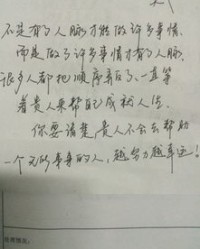 不是有了人脉才能做许多事情,
而是做了许多事情才有了人脉。
很多人都把顺序弄反了,一直等
着贵人来帮自己成就人生。
你要清楚,贵人不会去帮助
一个无所事事的人,越努力越幸运!